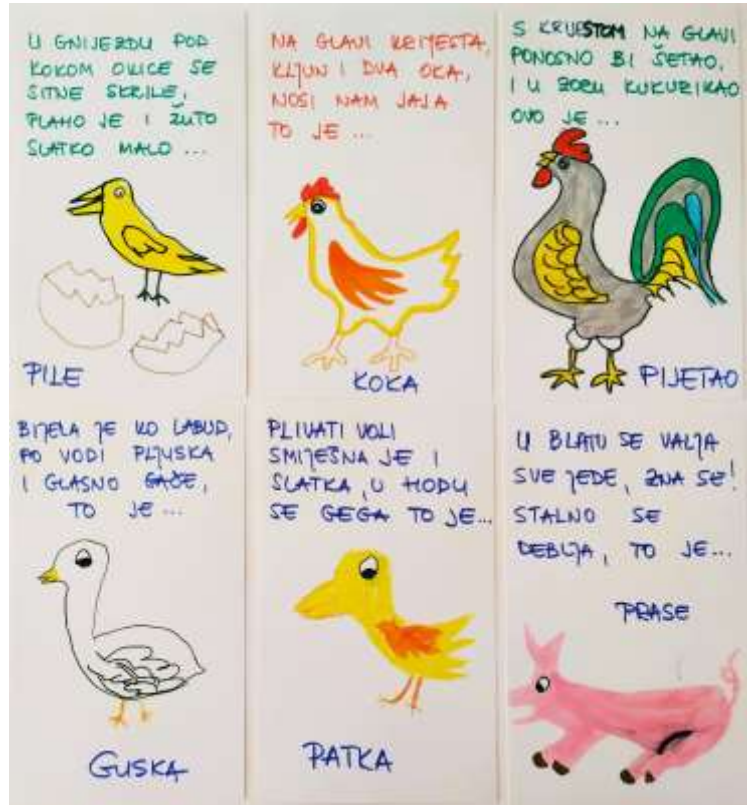 U GNIJEZDU POD
KOKOM OVICE SE
SITNE SKRILE,
PLAHO JE I ŽUTO
SLATKO MALO ...
PILE
NA GLAVI KRIJESTA,
KLJUN I DVA OKA,
NOSI NAM JAJA
TO JE ...
KOKA
S KRIJESTOM NA GLAVI
PONOSNO BI ŠETAO,
I U ZORU KUKURIKAO
OVO JE ...
PIJETAO
BIJELA JE KO LABUD,
PO VODI PLJUSKA
I GLASNO GAČE,
TO JE ...
GUSKA
PLIVATI VOLI
SMIJEŠNA JE I
SLATKA, U HODU
SE GEGA TO JE...
PATKA
U BLATU SE VALJA
SVE JEDE, ZNA SE!
STALNO SE
DEBLJA, TO JE...
PRASE